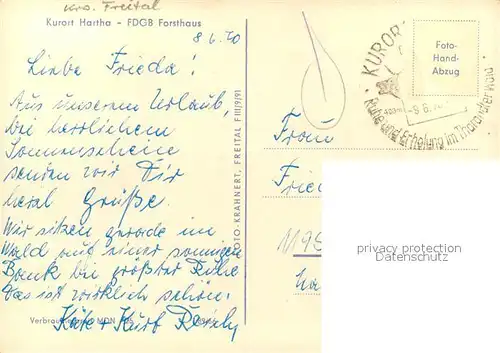 Krs. Freital
Kurort Hartha - FDGB Forsthaus
8.6.70
Liebe Frieda!
Aus unserem Urlaub
bei herrlichem
Sonnenscheine
senden wir Dir
herzl Grüße.
Wir sitzen gerade im
Wald auf einer sonnigen
Bank bei größter Ruhe
Das ist wirklich schön.
Käte + Kurt
Verbrau MDN
FOTO-KRAHNERT, FREITAL F III/9/91
KURORT
-9.6.
Ruhe und Erholung im Tharandter Wald
Foto-
Hand-
Abzug
Frau
Frie
privacy protection
Datenschutz